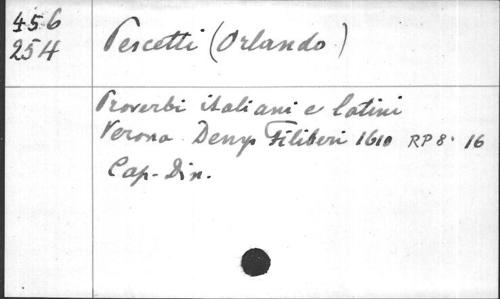 456
254
Pescetti (Orlando)
Proverbi italiani e latini
Verona Denys Filiberi 1610 RP 8° 16
Cap-Din.